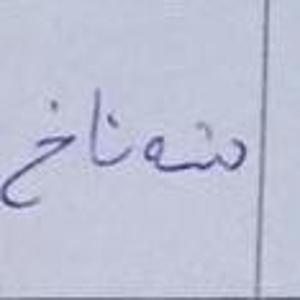 شەناخ